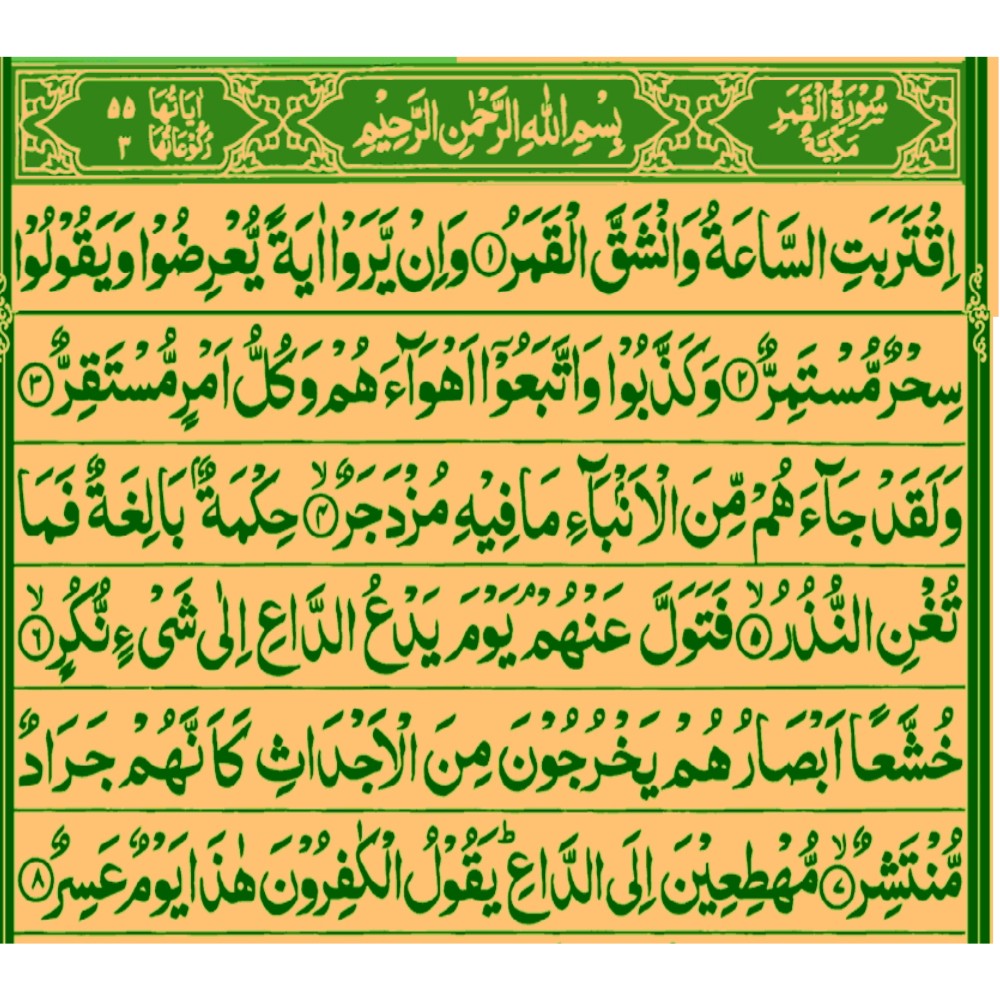 سُوْرَةُ الْقَمَرِ مَكِّيَّةٌ
بِسْمِ اللهِ الرَّحْمٰنِ الرَّحِيْمِ
اٰيَاتُهَا ۵۵
رُكُوْعَاتُهَا ۳
اِقْتَرَبَتِ السَّاعَةُ وَانْشَقَّ الْقَمَرُ ۱ وَاِنْ يَّرَوْا اٰيَةً يُّعْرِضُوْا وَيَقُوْلُوْا
سِحْرٌ مُّسْتَمِرٌّ ۲ وَكَذَّبُوْا وَاتَّبَعُوْٓا اَهْوَآءَهُمْ وَكُلُّ اَمْرٍ مُّسْتَقِرٌّ ۳
وَلَقَدْ جَآءَهُمْ مِّنَ الْاَنْۢبَآءِ مَا فِيْهِ مُزْدَجَرٌ ۴ۙ حِكْمَةٌۢ بَالِغَةٌ فَمَا
تُغْنِ النُّذُرُ ۵ۙ فَتَوَلَّ عَنْهُمْ ۘ يَوْمَ يَدْعُ الدَّاعِ اِلٰى شَىْءٍ نُّكُرٍ ۶ۙ
خُشَّعًا اَبْصَارُهُمْ يَخْرُجُوْنَ مِنَ الْاَجْدَاثِ كَاَنَّهُمْ جَرَادٌ
مُّنْتَشِرٌ ۷ۙ مُّهْطِعِيْنَ اِلَى الدَّاعِ ؕ يَقُوْلُ الْكٰفِرُوْنَ هٰذَا يَوْمٌ عَسِرٌ ۸